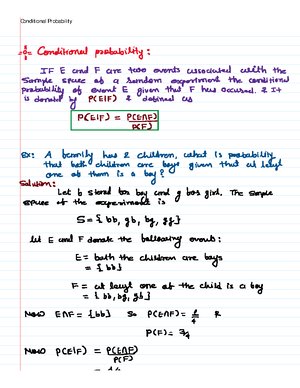 Conditional Probability
Conditional probability:
IF E and F are two events associated with the
Sample space of a random experiment the conditional
probability of event E given that F has occured. & It
is denoted by P(E|F) & defined as
P(E|F) = P(E∩F)
P(F)
Ex: A family has 2 children, what is probability
that both children are boys given that at least
one of them is a boy?
Solution:
Let b stand for boy and g for girl. The sample
space of the experiment is
S = { bb, gb, bg, gg}
let E and F denote the following events:
E = both the children are boys
= { bb}
F = at least one of the child is a boy
= { bb, bg, gb}
Now E∩F = {bb} So P(E∩F) = 1/4 &
P(F) = 3/4
Now P(E|F) = P(E∩F)
P(F)